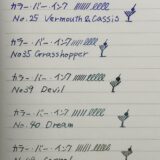 カラー・バー・インク
No.25 Vermouth&Cassis
カラー・バー・インク
No35 Grasshopper
カラー・バー・インク
No39 Devil
カラー・バー・インク
No.40 Dream
カラー・バー・インク